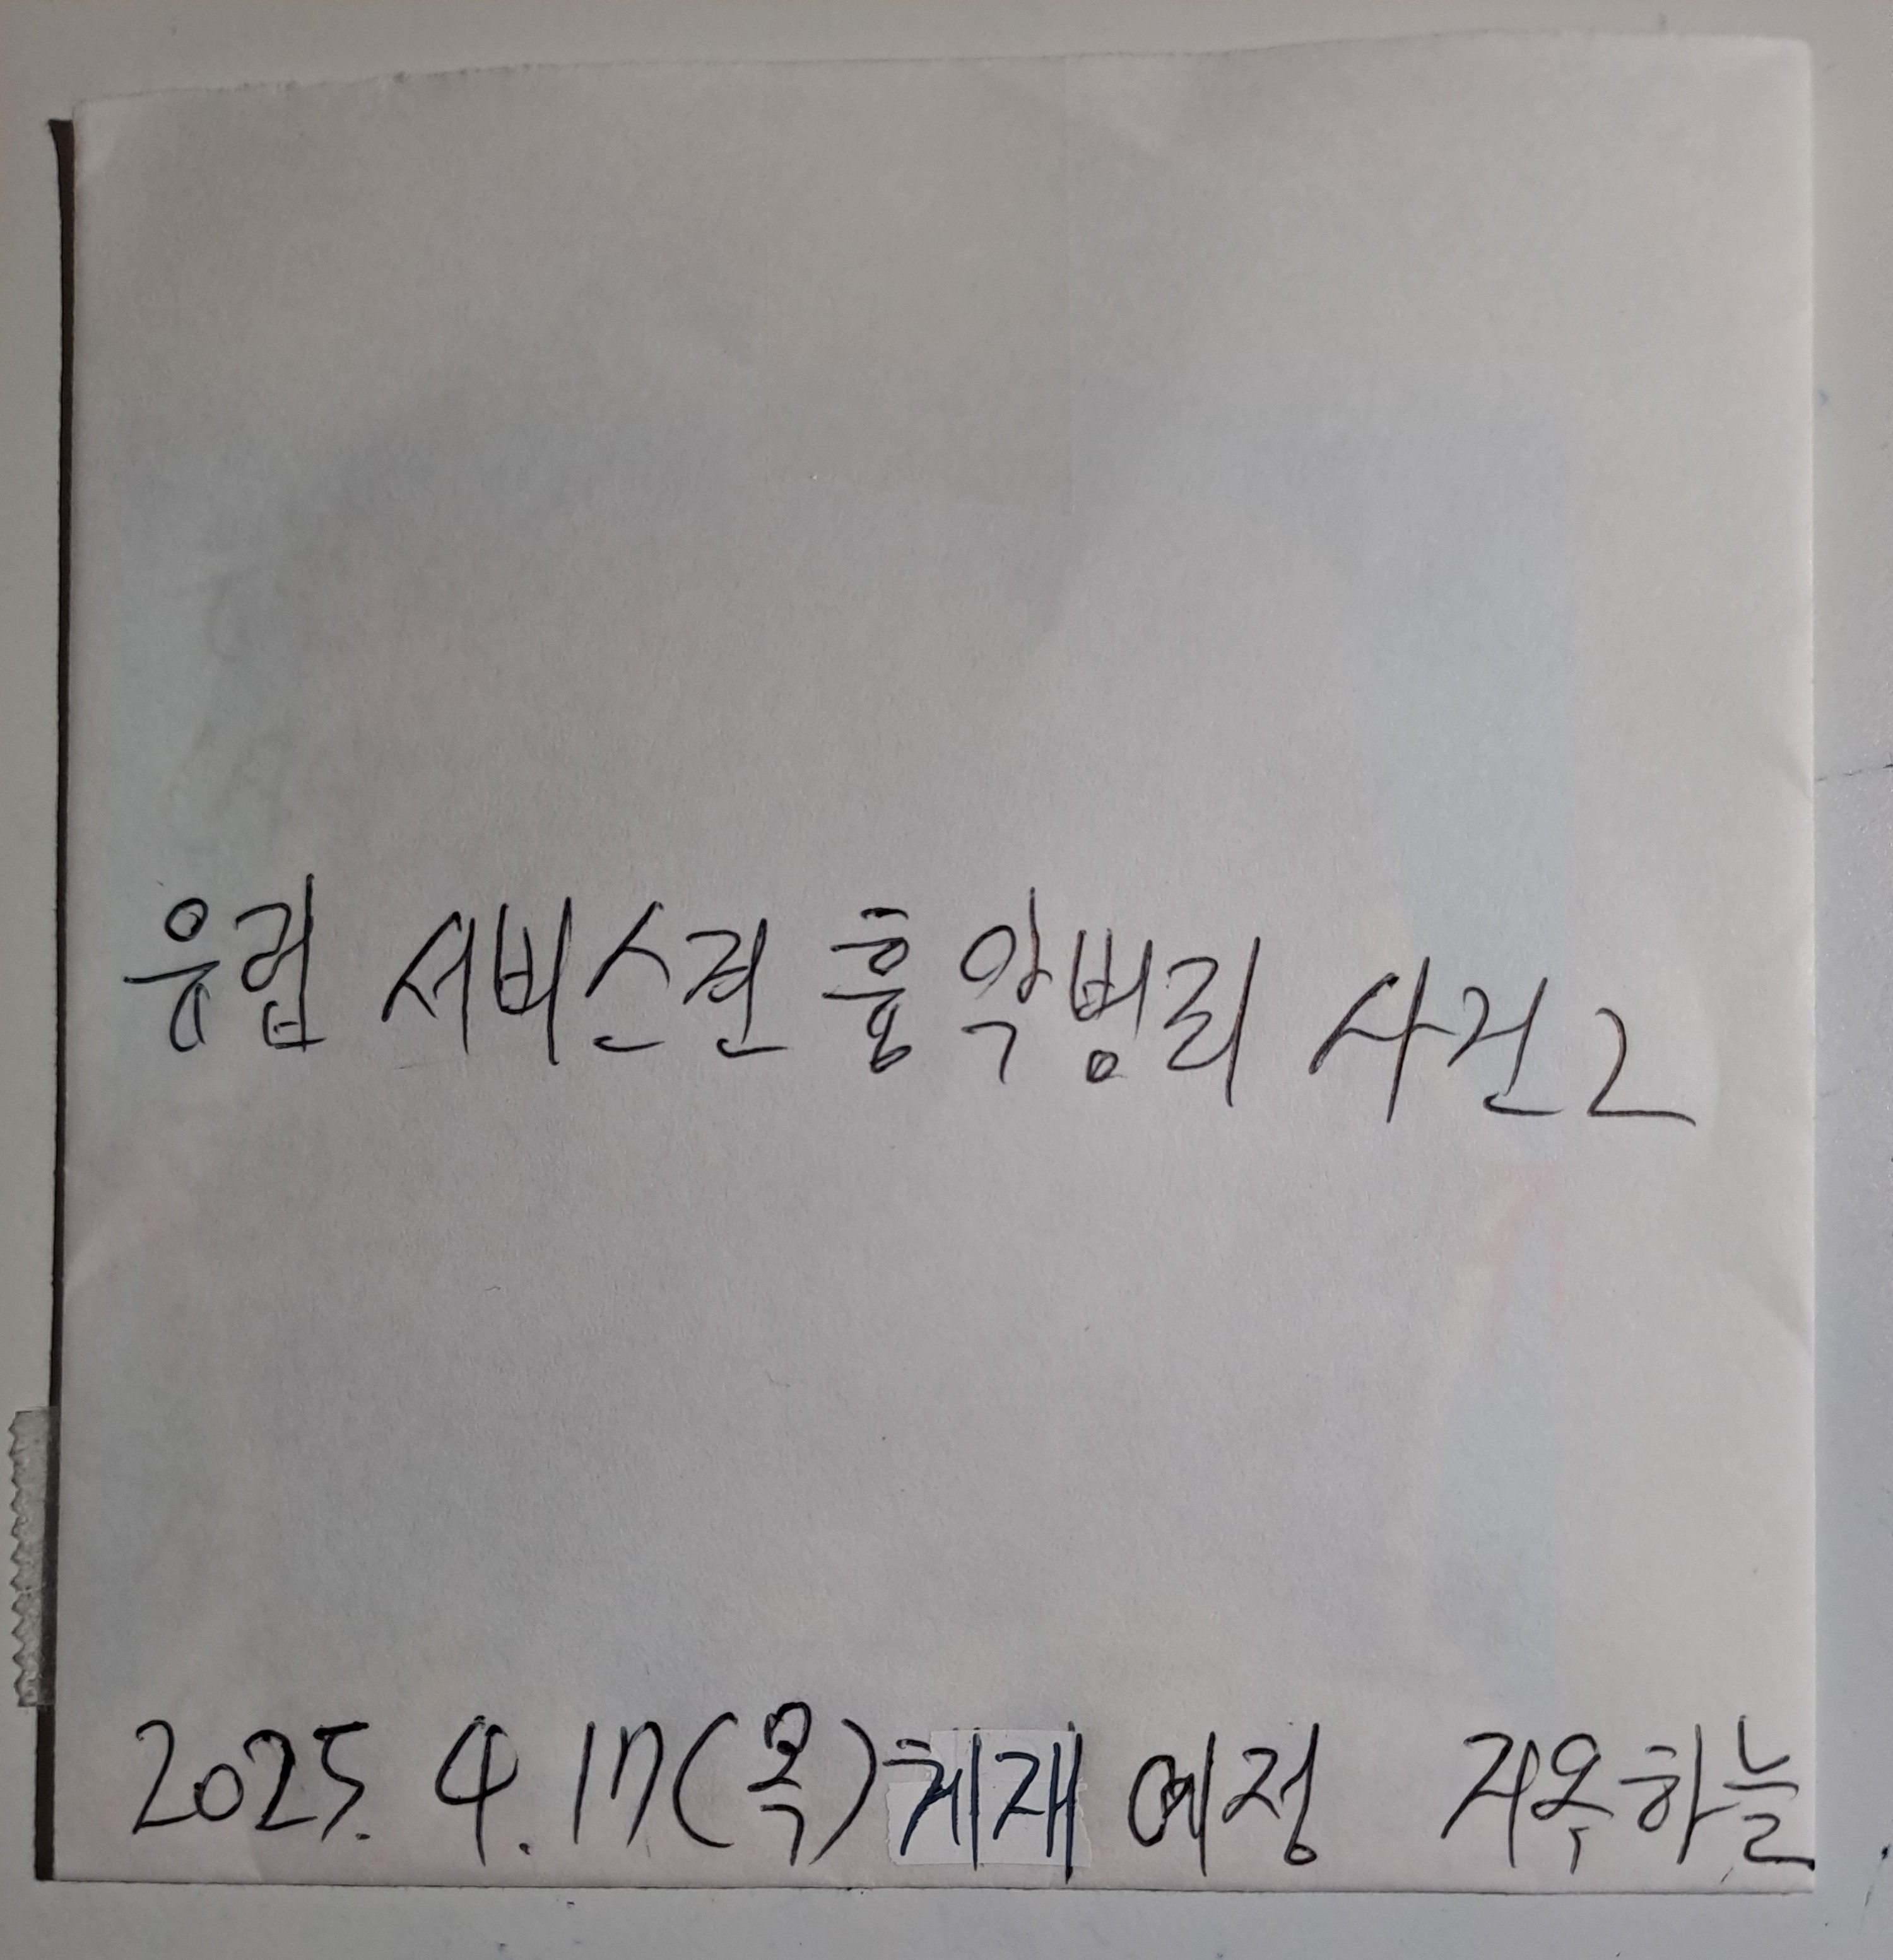 유럽 서비스견 흉악범리 사건2
2025. 4. 17(목)게재 예정 지우하늘